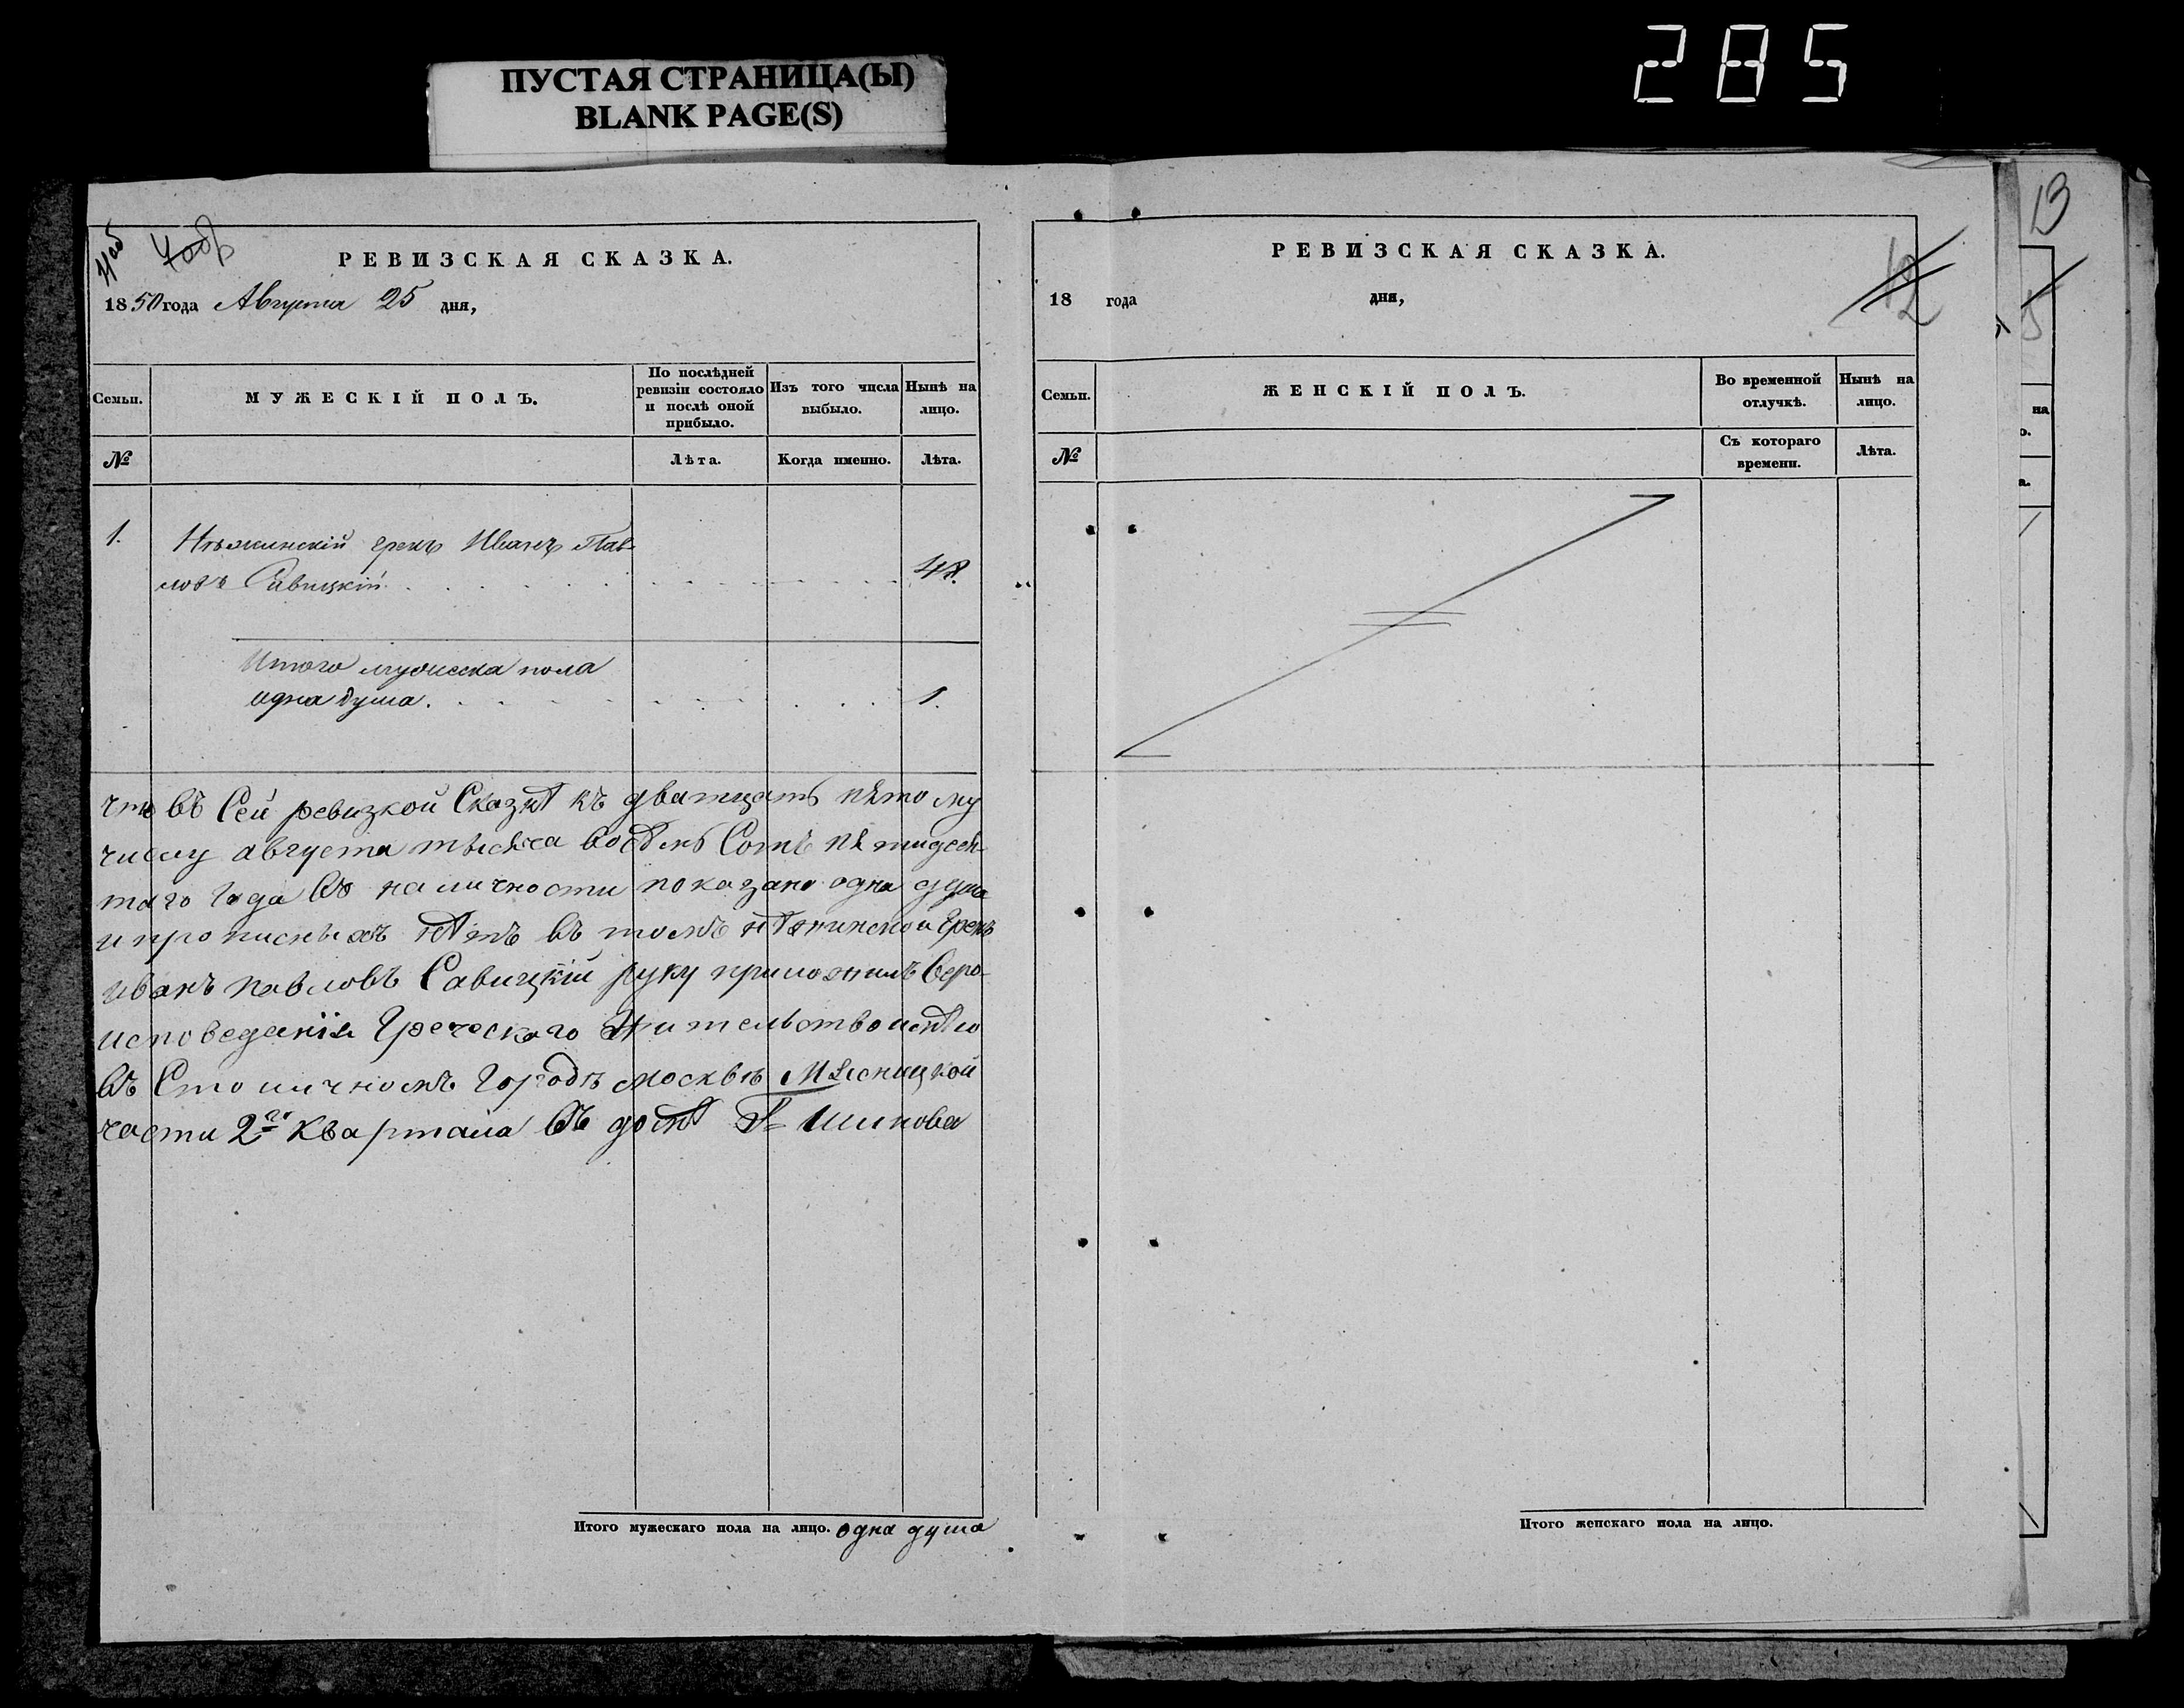 285
ПУСТАЯ СТРАНИЦА(Ы)
BLANK PAGE(S)
РЕВИЗСКАЯ СКАЗКА.
1850 года Августа 25 дня,
Семьи.
МУЖЕСКІЙ ПОЛЪ.
По послѣдней ревизіи состояло и послѣ оной прибыло.
Изъ того числа выбыло.
Нынѣ на лицо.
№
Лѣта.
Когда именно.
Лѣта.
1. Нѣжинскій грекъ Иванъ Пав-
ловъ Савицкій 48.
Итого мужеска пола
одна душа. 1.
что въ Сей ревизкой Сказкѣ къ дватцать пятому
числу августа тысяса восѣмь Сотъ пятидеся-
таго Года въ наличности показано одна душа
и прописныхъ нѣтъ въ томъ нѣжинской Грекъ
иванъ павловъ Савицкій руку приложилъ Веро-
исповеданія Греческого Жительство имѣю
въ Столичномъ Городѣ москвѣ Мясницкой
части 2го квартала въ домѣ Шипова
Итого мужескаго пола на лицо. одна душа
РЕВИЗСКАЯ СКАЗКА.
12
18 года дня,
Семьи.
ЖЕНСКІЙ ПОЛЪ.
Во временной отлучкѣ.
Нынѣ на лицо.
№
Съ котораго времени.
Лѣта.
Итого женскаго пола на лицо.
13
на